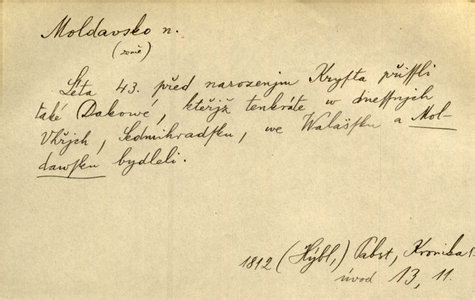 Moldavsko n.
(země)
Léta 43. před narozenjm Krysta přissli
také Dakowé, kteřjž tenkráte w dnessnjch
Vhřjch, Sedmihradsku, we Walassku a Mol-
dawsku bydleli.
1812 (Hýbl,) Pabst, Kronika
úvod 13, 11.